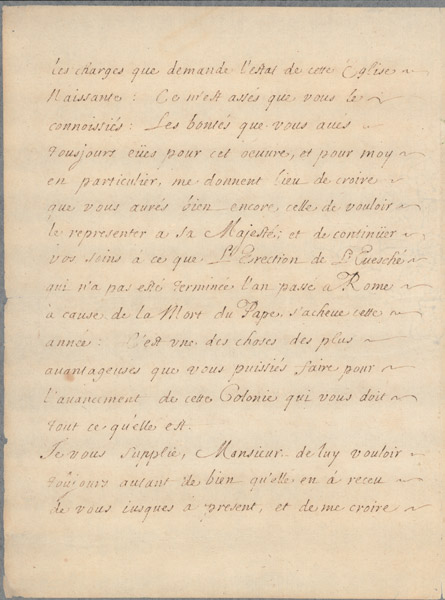 les charges que demande l'estat de cette Eglise
Naissante : Ce m'est assés que vous le
connoissiés : Les bontés que vous aues
tousjours eües pour cet oeuvre, et pour moy
en particulier, me donnent lieu de croire
que vous aurés bien encore celle de vouloir
le representer a sa Majesté; et de continüer
vos soins à ce que L'Erection de L'Euesché
qui n'a pas esté terminée l'an passe a Rome
à cause de la Mort du Pape, s'acheue cette
année : C'est vne des choses des plus
auantageuses que vous puissiés faire pour
l'auancement de cette Colonie qui vous doit
tout ce qu'elle est.
Je vous supplie, Monsieur de luy vouloir
toujours autant de bien qu'elle en à receu
de vous iusques à present, et de me croire